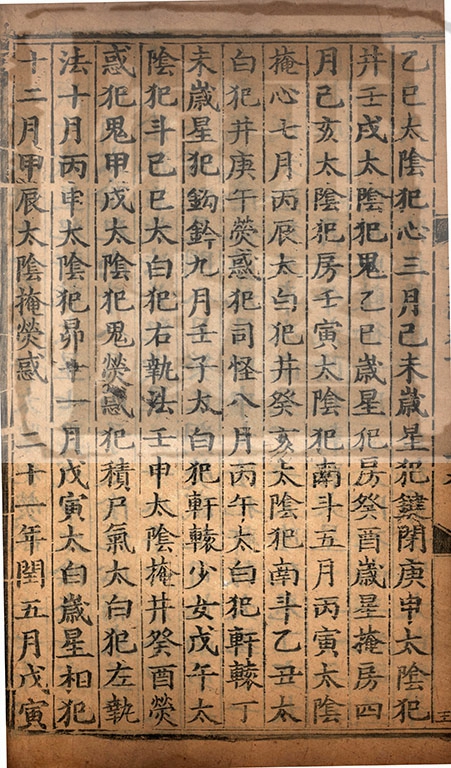 乙巳太陰犯心三月己未歲星犯鍵閉庚申太陰犯
井壬戌太陰犯鬼乙巳歲星犯房癸酉歲星掩房四
月己亥太陰犯房壬寅太陰犯南斗五月丙寅太陰
掩心七月丙辰太白犯井癸亥太陰犯南斗乙丑太
白犯井庚午熒惑犯司怪八月丙午太白犯軒轅丁
未歲星犯鈎鈐九月壬子太白犯軒轅少女戊午太
陰犯斗己巳太白犯右執法壬申太陰掩井癸酉熒
惑犯鬼甲戌太陰犯鬼熒惑犯積尸氣太白犯左執
法十月丙申太陰犯昴十一月戊寅太白歲星相犯
十二月甲辰太陰掩熒惑 二十一年閏五月戊寅